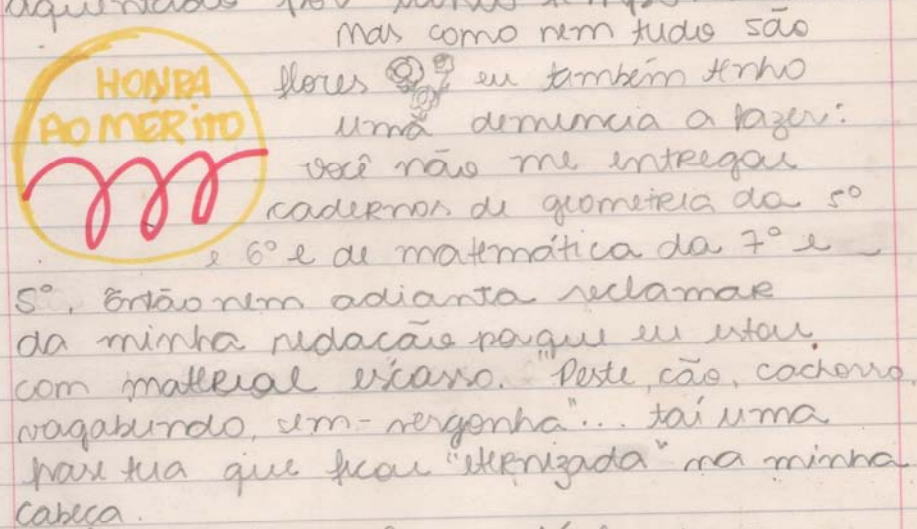 mas como nem tudo são
HONRA
AO MERITO
flores eu também tenho
uma denuncia a fazer:
você não me entregou
cadernos de geometria da 5º
e 6º e de matemática da 7º e
5º. Então nem adianta reclamar
da minha redação porque eu estou
com material escasso. "Peste, cão, cachorro,
vagabundo, sem-vergonha"... taí uma
frase tua que ficou "eternizada" na minha
cabeça.